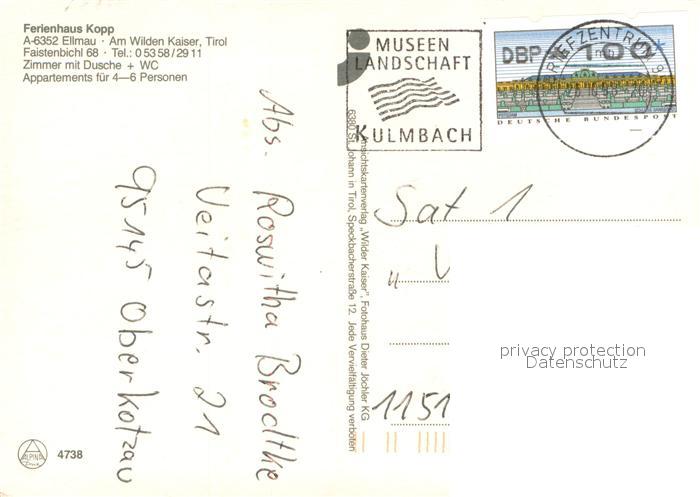 Ferienhaus Kopp
A-6352 Ellmau · Am Wilden Kaiser, Tirol
Faistenbichl 68 · Tel.: 0 53 58 / 29 11
Zimmer mit Dusche + WC
Appartements für 4—6 Personen
MUSEEN
LANDSCHAFT
KULMBACH
BRIEFZENTRUM
DBP
100
DEUTSCHE BUNDESPOST
Abs. Roswitha Brodtke
Veitastr. 21
95145 Oberkotzau
Ansichtskartenverlag „Wilder Kaiser", Fotohaus Dieter Jöchler KG
6380 St. Johann in Tirol, Speckbacherstraße 12. Jede Vervielfältigung verboten
Sat 1
1151
privacy protection
Datenschutz
ALPINA
4738